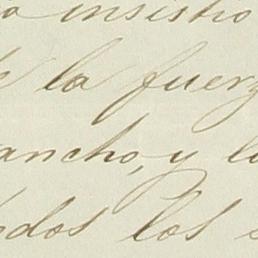 insistio
la fuerz
ancho, y l
dos los